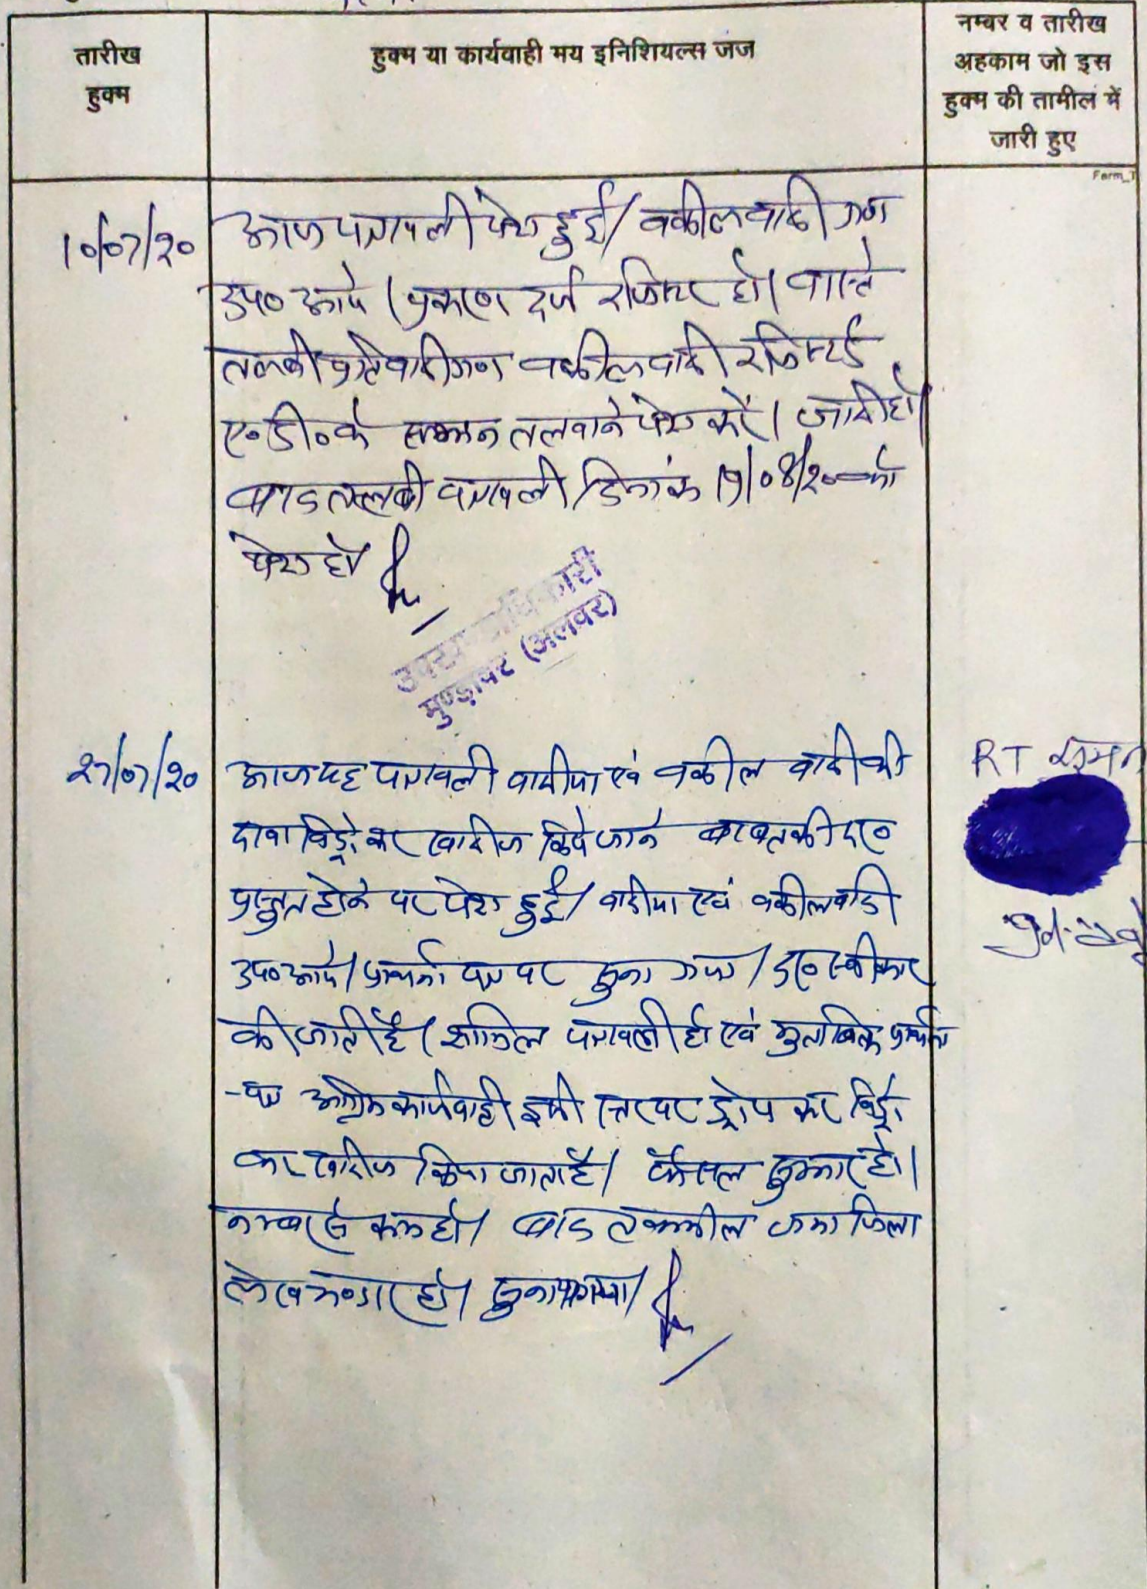 तारीख
हुक्म
हुक्म या कार्यवाही मय इनिशियल्स जज
नम्बर व तारीख
अहकाम जो इस
हुक्म की तामील में
जारी हुए
10/07/20
आज पत्रावली पेश हुई/ वकील वादी गण
उप० आये। प्रकरण दर्ज रजिस्टर हो। वास्ते
तलबी प्रतिवादीगण वकील वादी रजिस्टर्ड
ए०डी० के सम्मन तलवाने पेश करें। जारी हो।
बाद तलबी पत्रावली दिनांक 19/08/20 को
पेश हो
उपखण्ड अधिकारी
मुण्डावर (अलवर)
27/07/20
आज यह पत्रावली वादीया एवं वकील वादी की
दावा विड्रो कर खारीज किये जाने बाबत की द०
प्रस्तुत होने पर पेश हुई/ वादीया एवं वकील वादी
उप० आये/ प्रार्थना पत्र पर सुना गया/ द० स्वीकार
की जाती है। शामिल पत्रावली हो एवं मुताबिक प्रार्थना
-पत्र अग्रिम कार्यवाही इसी स्तर पर ड्रोप कर विड्रो
कर खारीज किया जाता है/ फैसल शुमार हो।
नम्बर से कम हो/ बाद तकमील जमा जिला
लेखागार हो/ सुनाया गया/
RT सम्मन